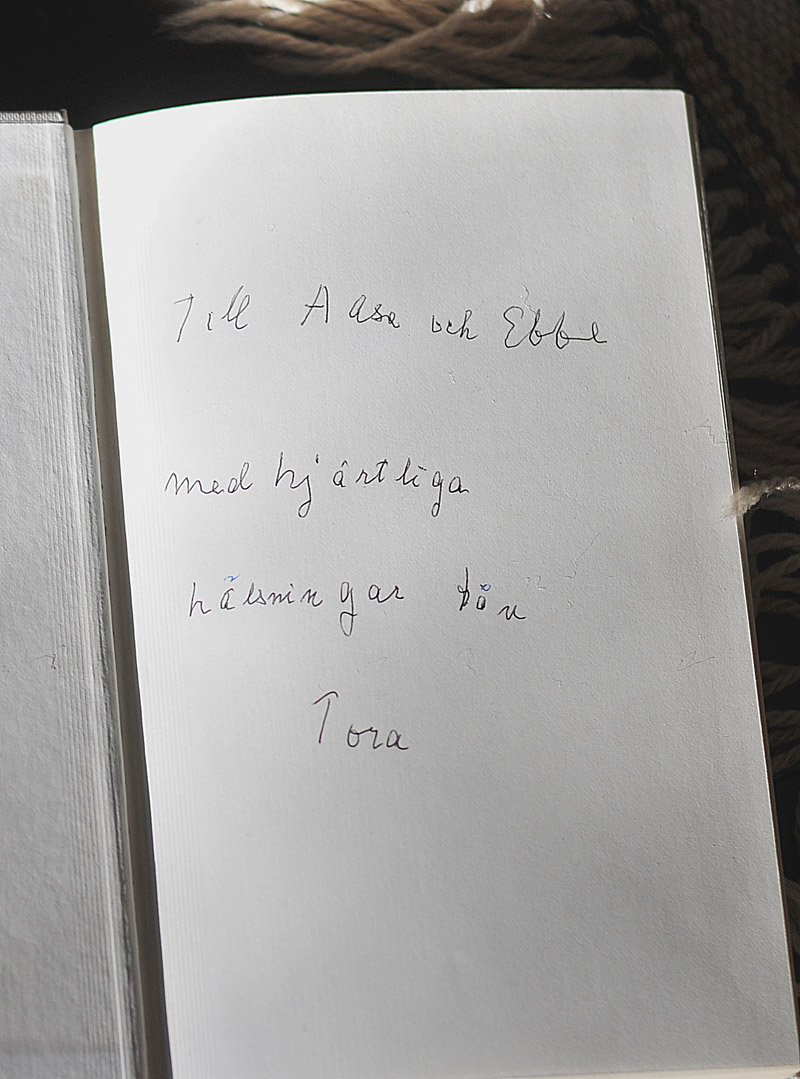 Till Aase och Ebbe
med hjärtliga
hälsningar från
Tora